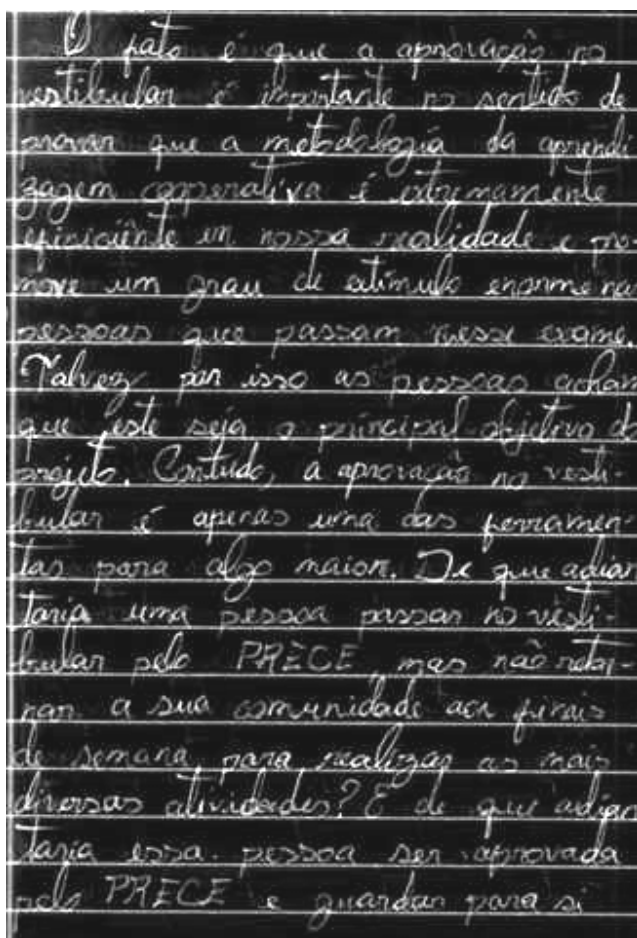 O fato é que a aprovação no
vestibular é importante no sentido de
provar que a metodologia da aprendi
zagem cooperativa é extremamente
eficiênte em nossa realidade e pro
move um grau de estímulo enorme nas
pessoas que passam nesse exame.
Talvez por isso as pessoas acham
que este seja o principal objetivo do
projeto. Contudo, a aprovação no vesti-
bular é apenas uma das ferramen-
tas para algo maior. De que adian
taria uma pessoa passar no vesti-
bular pelo PRECE, mas não retor-
nar a sua comunidade aos finais
de semana para realizar as mais
diversas atividades? E de que adian
taria essa pessoa ser aprovada
pelo PRECE e guardar para si